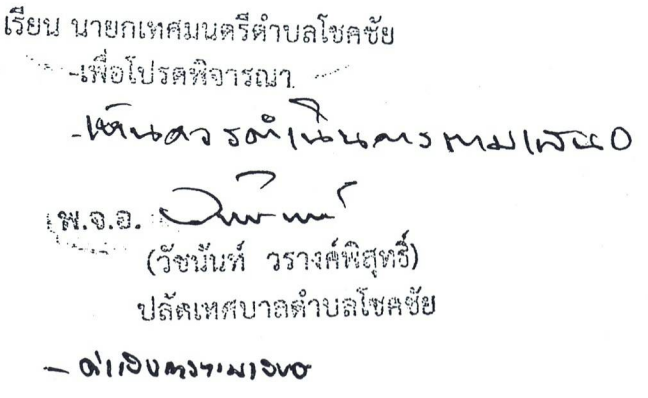 เรียน นายกเทศมนตรีตำบลโชคชัย
-เพื่อโปรดพิจารณา
-เห็นควรดำเนินการตามเสนอ
พ.จ.อ.
(วัชนันท์ วรางค์พิสุทธิ์)
ปลัดเทศบาลตำบลโชคชัย
- ดำเนินการตามเสนอ